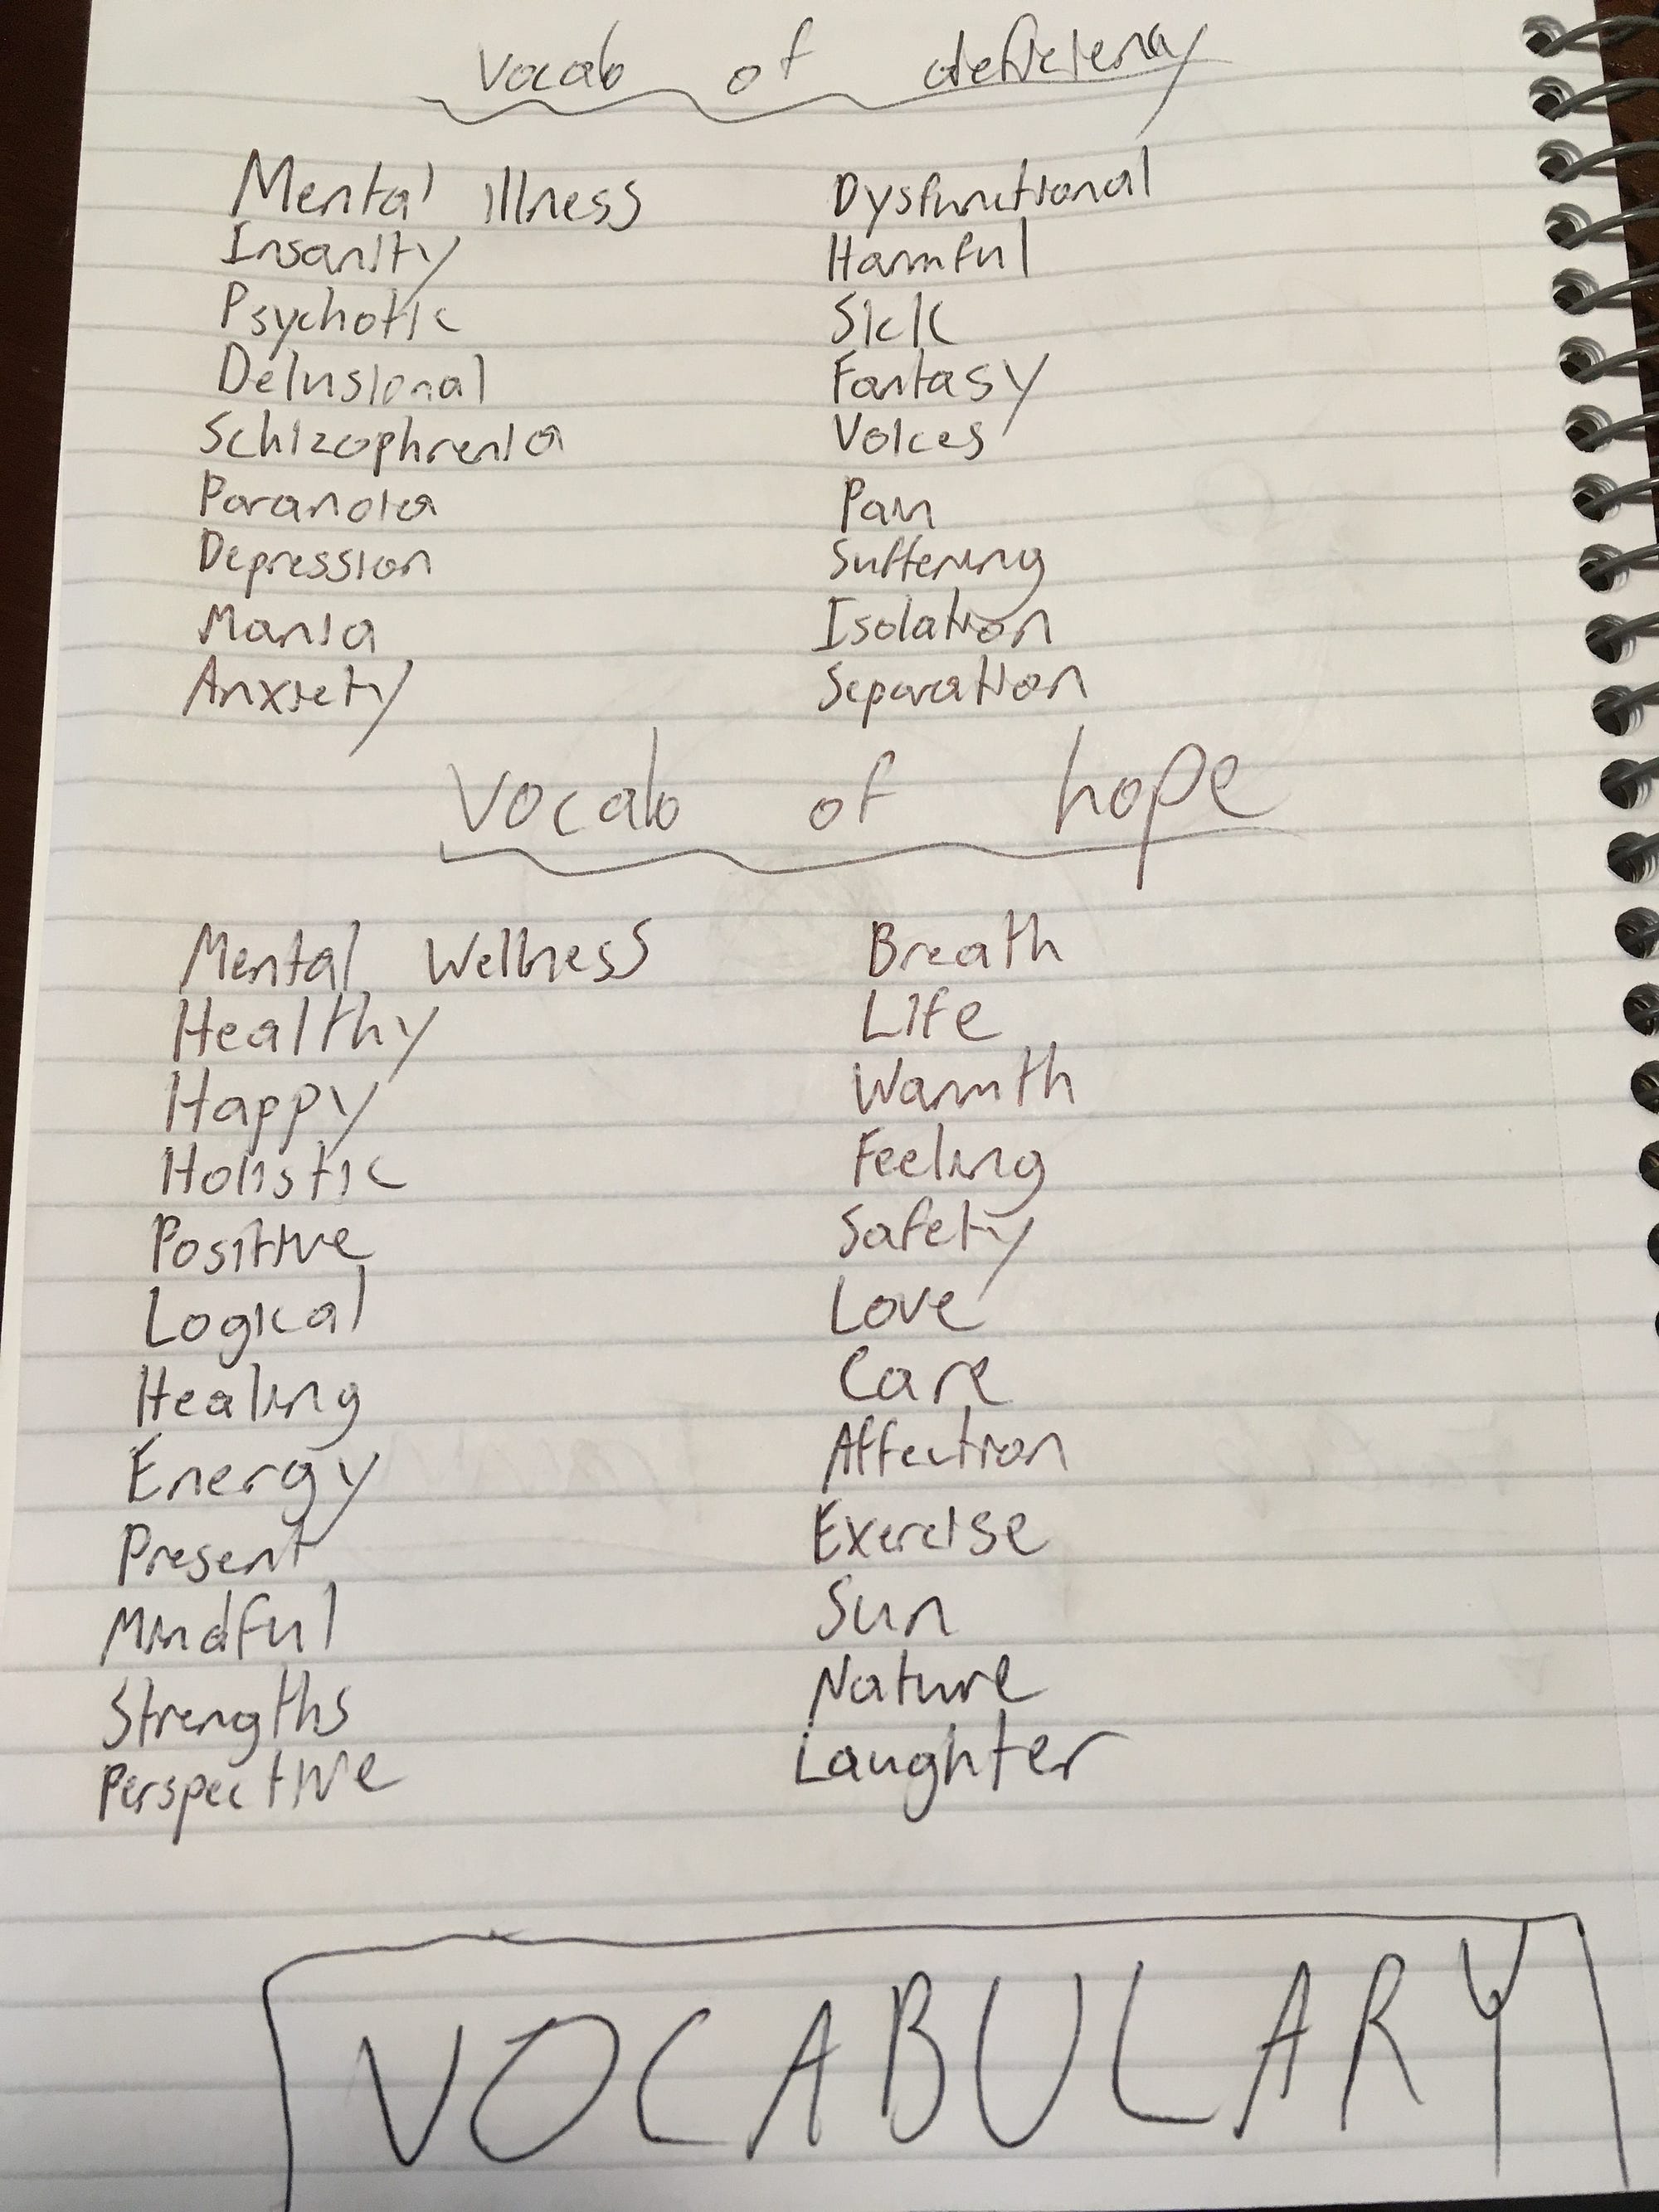 Vocab of deficiency
Mental illness
Insanity
Psychotic
Delusional
Schizophrenia
Paranoia
Depression
Mania
Anxiety
Dysfunctional
Harmful
Sick
Fantasy
Voices
Pain
Suffering
Isolation
Separation
Vocab of hope
Mental Wellness
Healthy
Happy
Holistic
Positive
Logical
Healing
Energy
Present
Mindful
Strengths
Perspective
Breath
Life
Warmth
Feeling
Safety
Love
Care
Affection
Exercise
Sun
Nature
Laughter
VOCABULARY